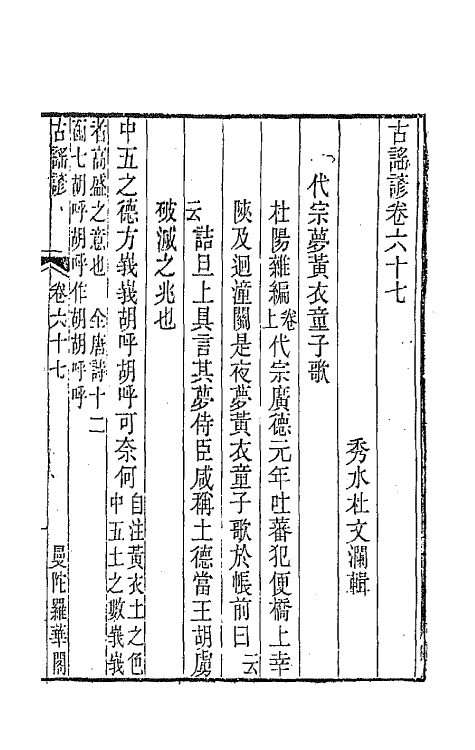 古謠諺卷六十七
秀水杜文瀾輯
代宗夢黃衣童子歌
杜陽雜編卷上代宗廣德元年吐蕃犯便橋上幸
陝及迴潼關是夜夢黃衣童子歌於帳前曰云
云詰旦上具言其夢侍臣咸稱土德當王胡虜
破滅之兆也
中五之德方峩峩胡呼胡呼可奈何自注黃衣土之色
中五土之數峩峩
者高盛之意也 全唐詩十二
函七胡呼胡呼作胡胡呼呼
古謠諺 卷六十七 曼陀羅華閣